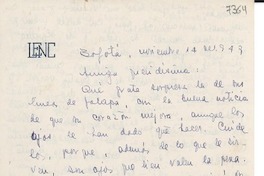 7364
Bogotá, noviembre 14 de 1949
Amiga queridísima:
Qué grata sorpresa la de sus
líneas de Jalapa, con la buena noticia
de que su corazón mejora, aunque los
ojos le han dado que hacer. Cuíde
los, porque, además de lo que le sir-
ven, son ojos que bien valen la pena